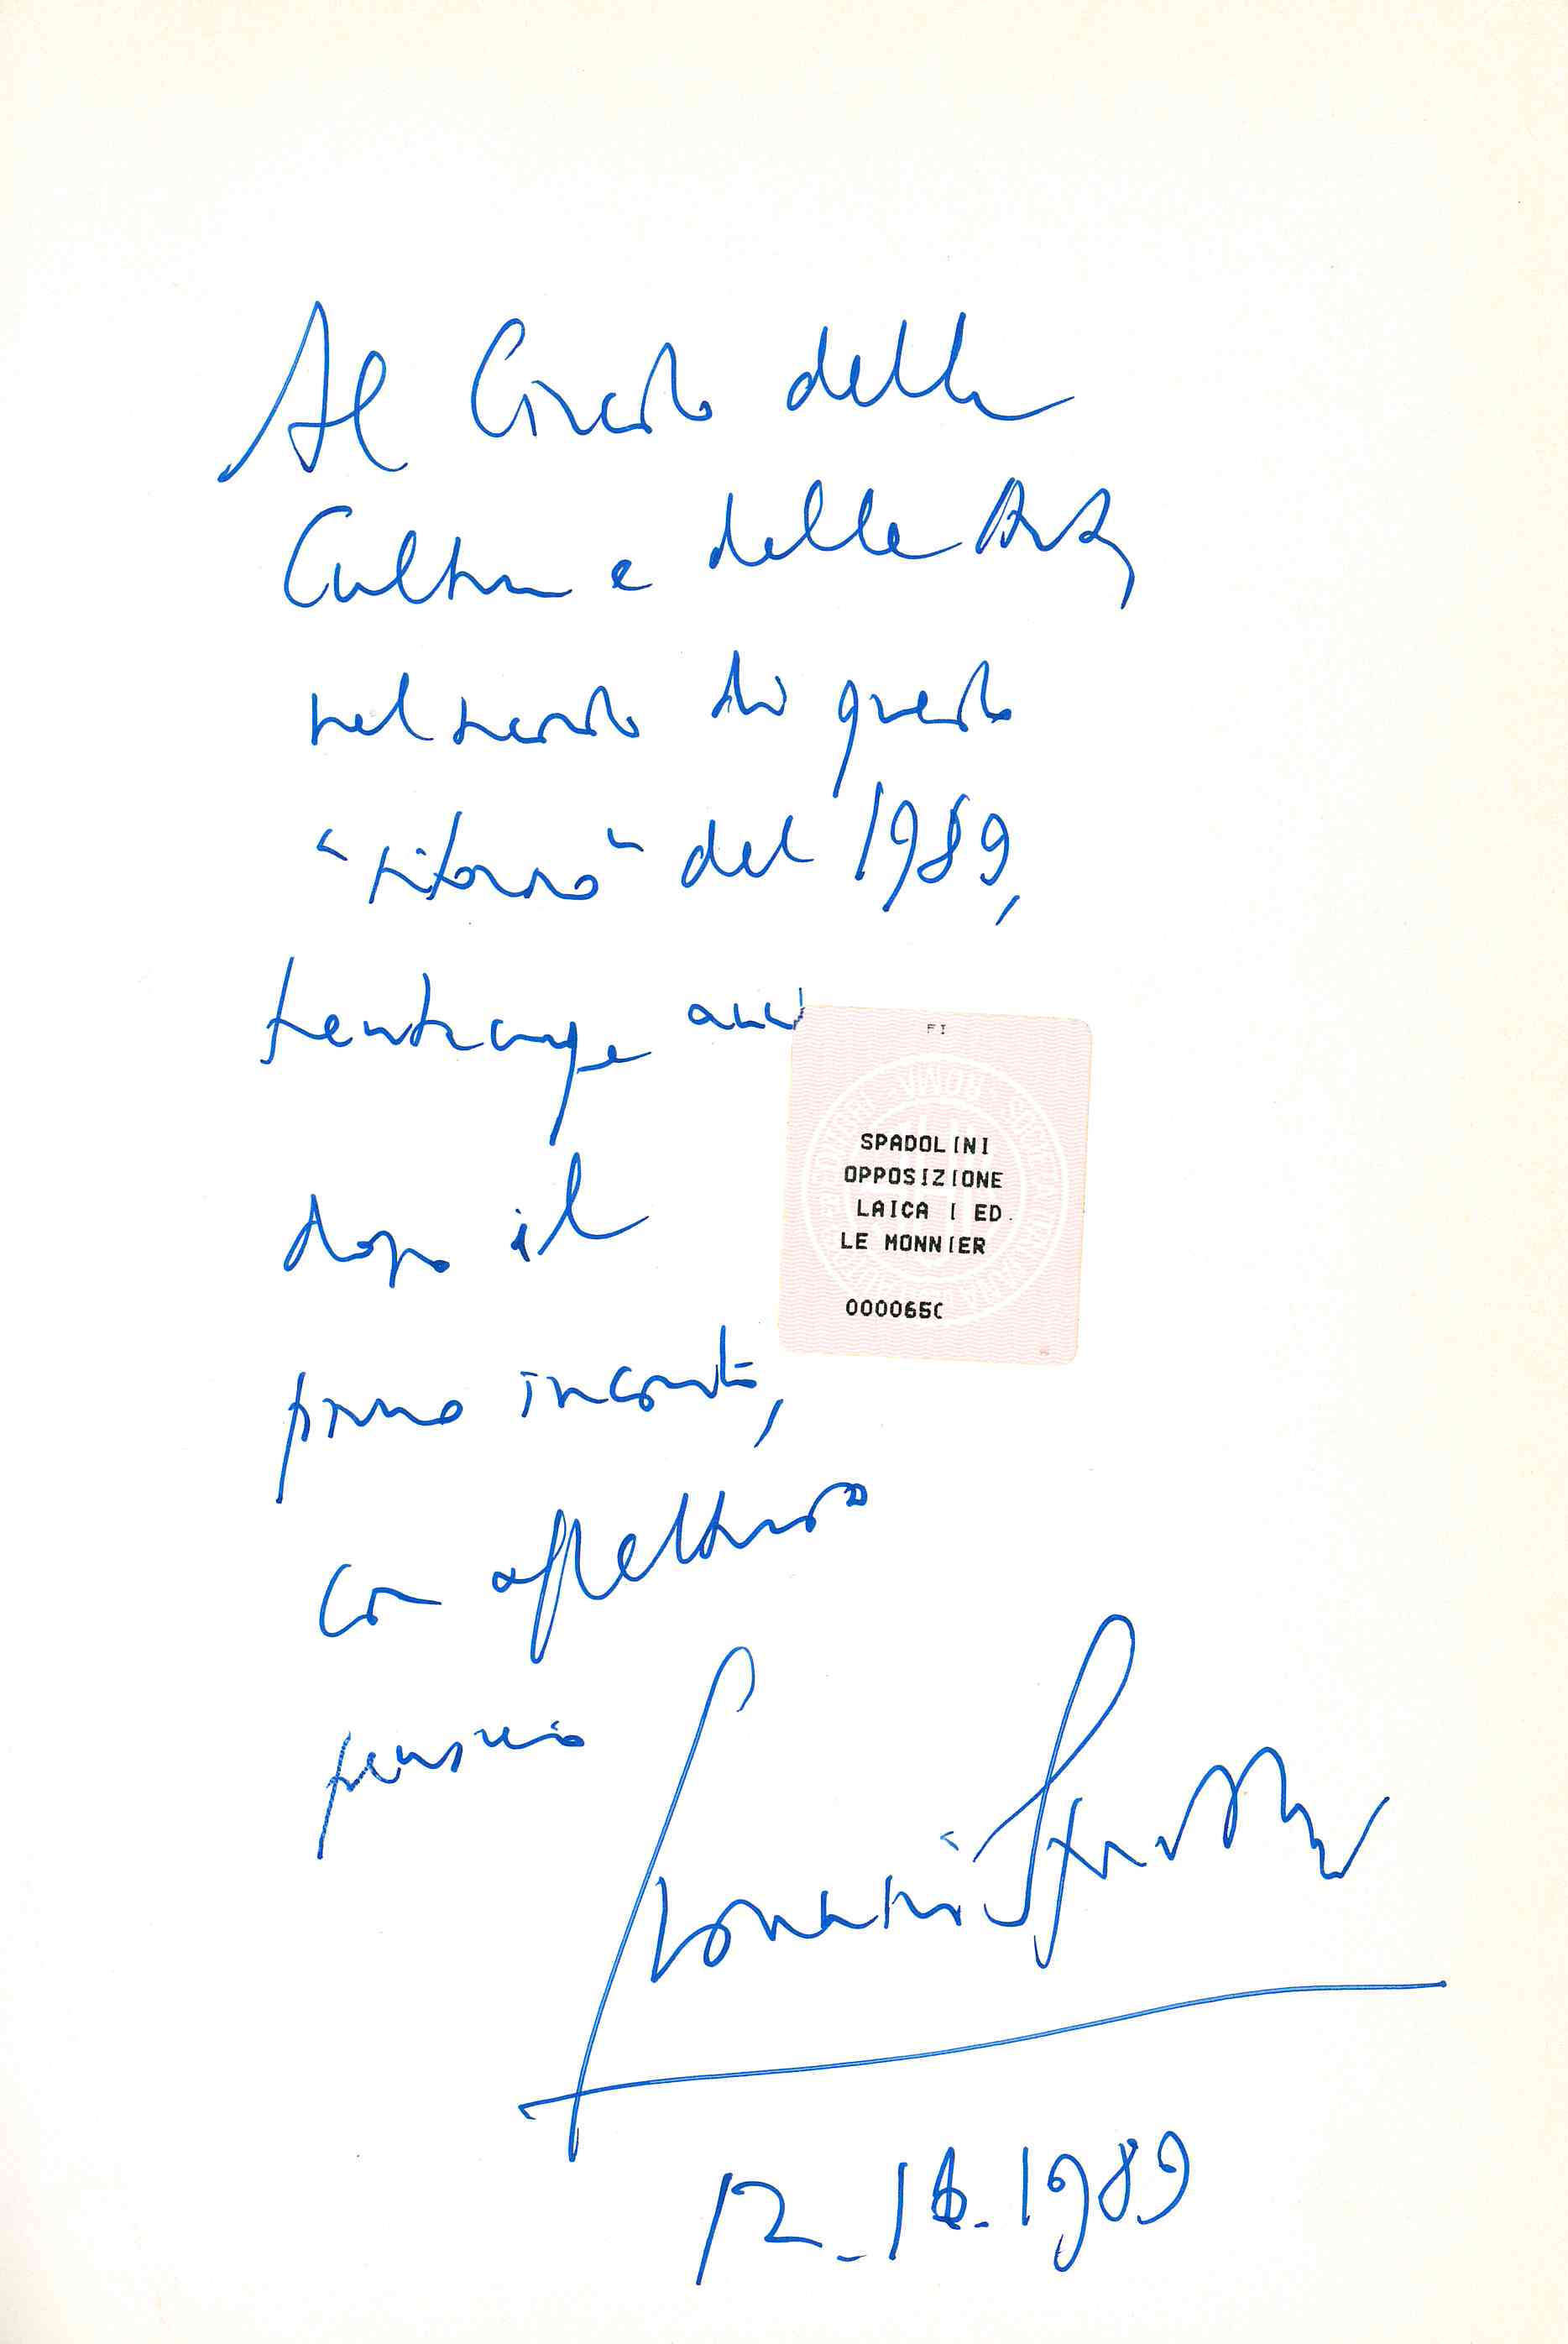 Al Circolo della
Cultura e delle Arti,
nel ricordo di questo
"ritorno" del 1989,
trentacinque anni
dopo il
primo incontro,
con affettuoso
pensiero
Giovanni Spadolini
12.10.1989
FI
SPADOLINI
OPPOSIZIONE
LAICA I ED.
LE MONNIER
000065